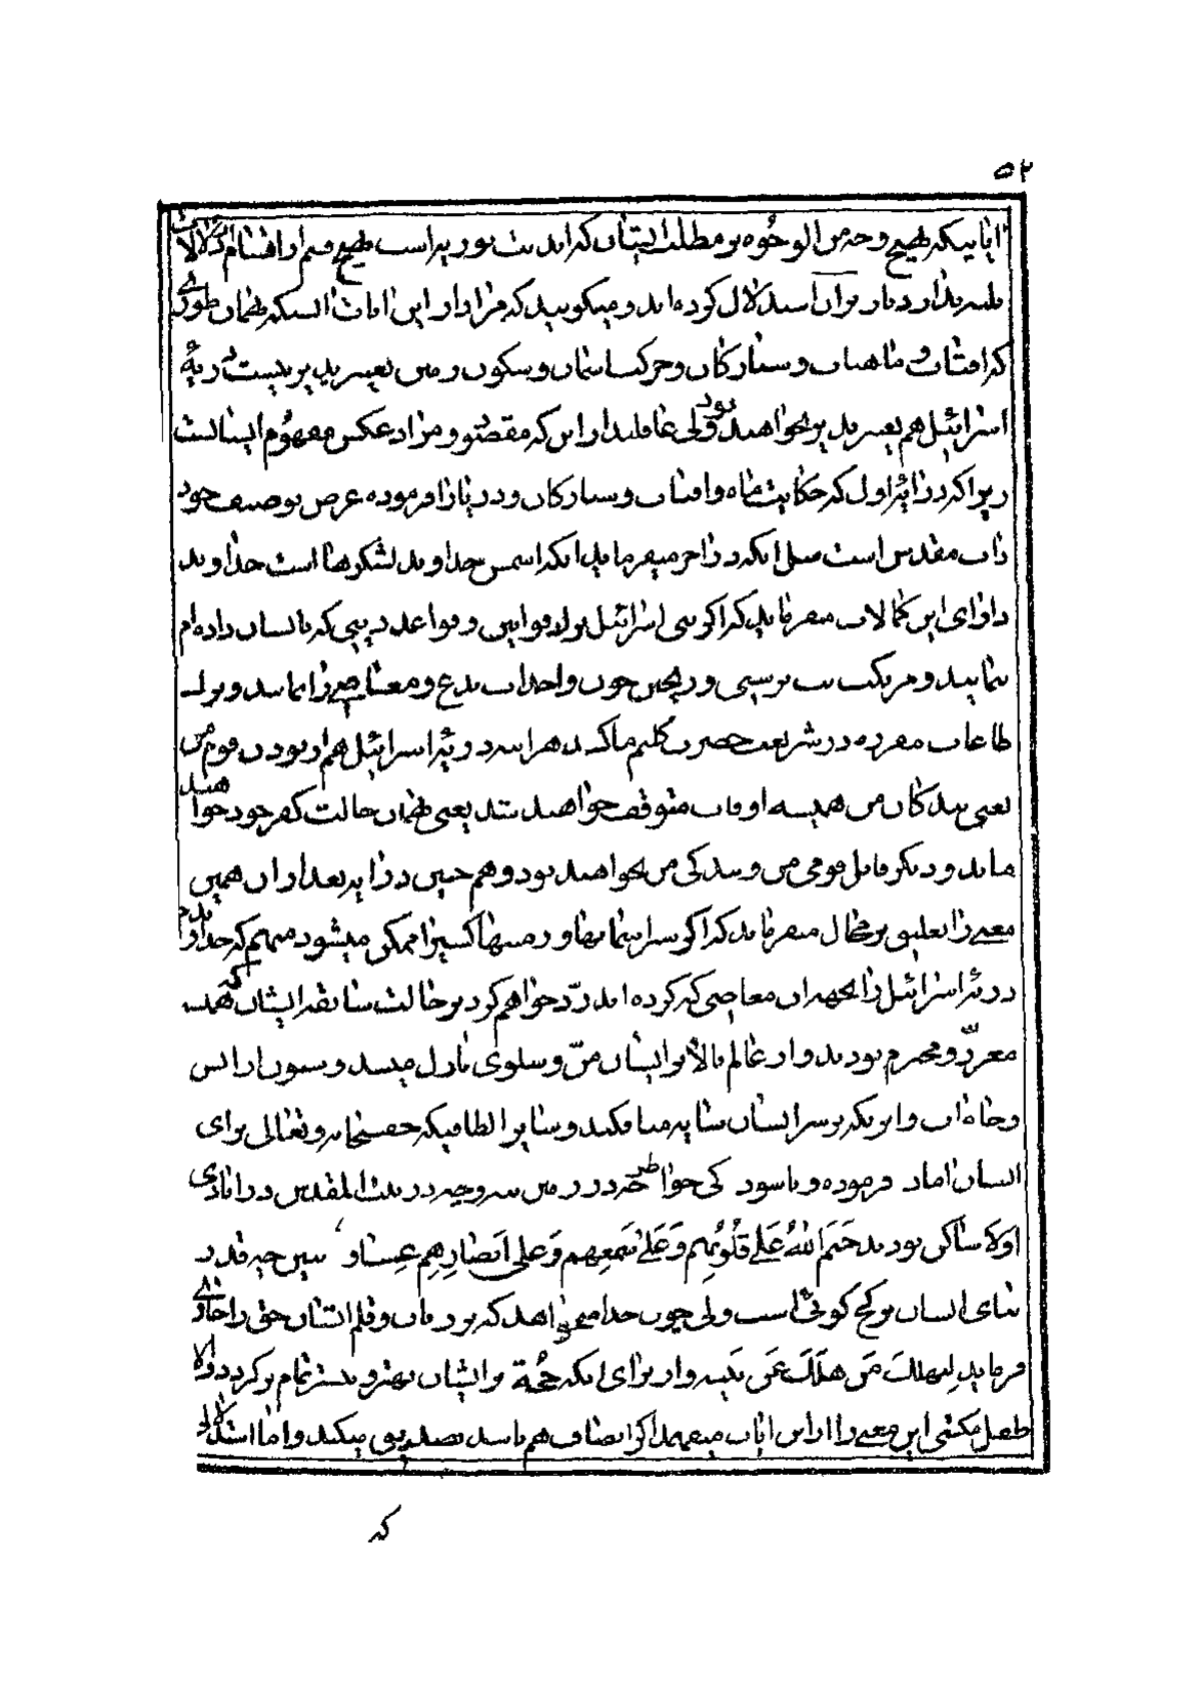 ۵۲
آیاتیکه بهیچ وجه من الوجوه بر مطلب ایشان که ابدیت توریه است بهیچ قسم از اقسام دلالات
ندارد بر آن استدلال کرده اند و میگویند که مراد از این آیات آنستکه همان طوری
که آفتاب و ماهتاب و ستارگان و حرکت آسمان و سکون زمین تغییر پذیر نیست ذریهٔ
اسرائیل هم تغییر پذیر نخواهند بود ولی غافلند از این که مقصود و مراد عکس مفهوم ایشانست
زیرا که در آیهٔ اول که حکایت ماه و آفتاب و ستارگان و دریا را فرموده غرض توصیف خود
ذات مقدس است مثل اینکه در آخر میفرماید اینکه اسمش خداوند لشکرها است خداوند
دارای این کمالات میفرماید که اگر بنی اسرائیل از این قوانین و قواعد دینی که بایشان داده ام
نمایند و مرتکب بت پرستی و ریختن خون و احداث بدع و معاصی را نمایند و ترک
طاعات مقرره در شریعت حضرت کلیم ما کنند هر آینه ذریهٔ اسرائیل هم از بودن قوم من
یعنی بندگان من همیشه اوقات متوقف خواهند شد یعنی بهمان حالت کفر خود خواهند
ماند و دیگر قابل قومی من و بندگی من نخواهند بود و هم چنین در آیه بعد از آن همین
معنی را تعلیق بر محال میفرماید که اگر پیمایش آسمانها و زمینها کسی را ممکن میشود منهم که خداوندم
ذریهٔ اسرائیل را بجهة آن معاصی که کرده اند رد خواهم کرد بر حالت سابقه ایشان که همیشه
معزز و محترم بودند و از عالم بالا بر ایشان منّ و سلوی نازل میشد و ستون آتش
و چاه آب و ابریکه بر سر ایشان سایه میافکند و سایر الطافیکه حق سبحانه و تعالی برای
ایشان آماده فرموده و با آسودگی خواطر در زمین سروچه در بیت المقدس در آبادی
اولا ساکن بودند خَتَمَ اللهُ عَلی قُلُوبِهِم وَعَلی سَمعِهِم وَعَلی اَبصارِهِم غِشاوة ببین چه قدر
بنای ایشان بر کج گوئی است ولی چون خدا میخواهد که بر زبان و قلم ایشان حق را جاری
فرماید لِیَهلِکَ مَن هَلَکَ عَن بَیِّنَه و از برای اینکه حُجّة بر ایشان بهتر و بیشتر تمام تر گردد و الا
طفل مکتبی این معنی را از این آیات میفهمد اگر انصاف هم باشد تصدیق میکند و اما استدلالی
که